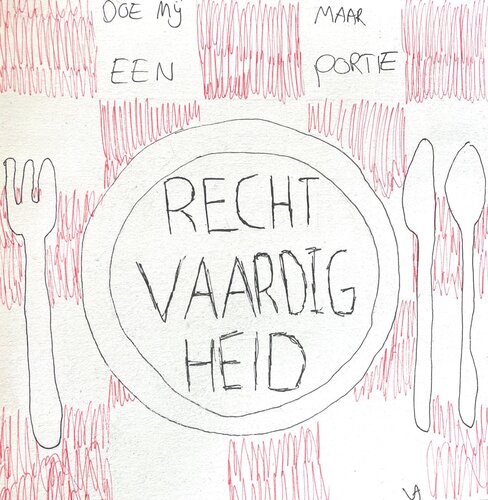 DOE MIJ MAAR
EEN PORTIE
RECHT
VAARDIG
HEID
VA